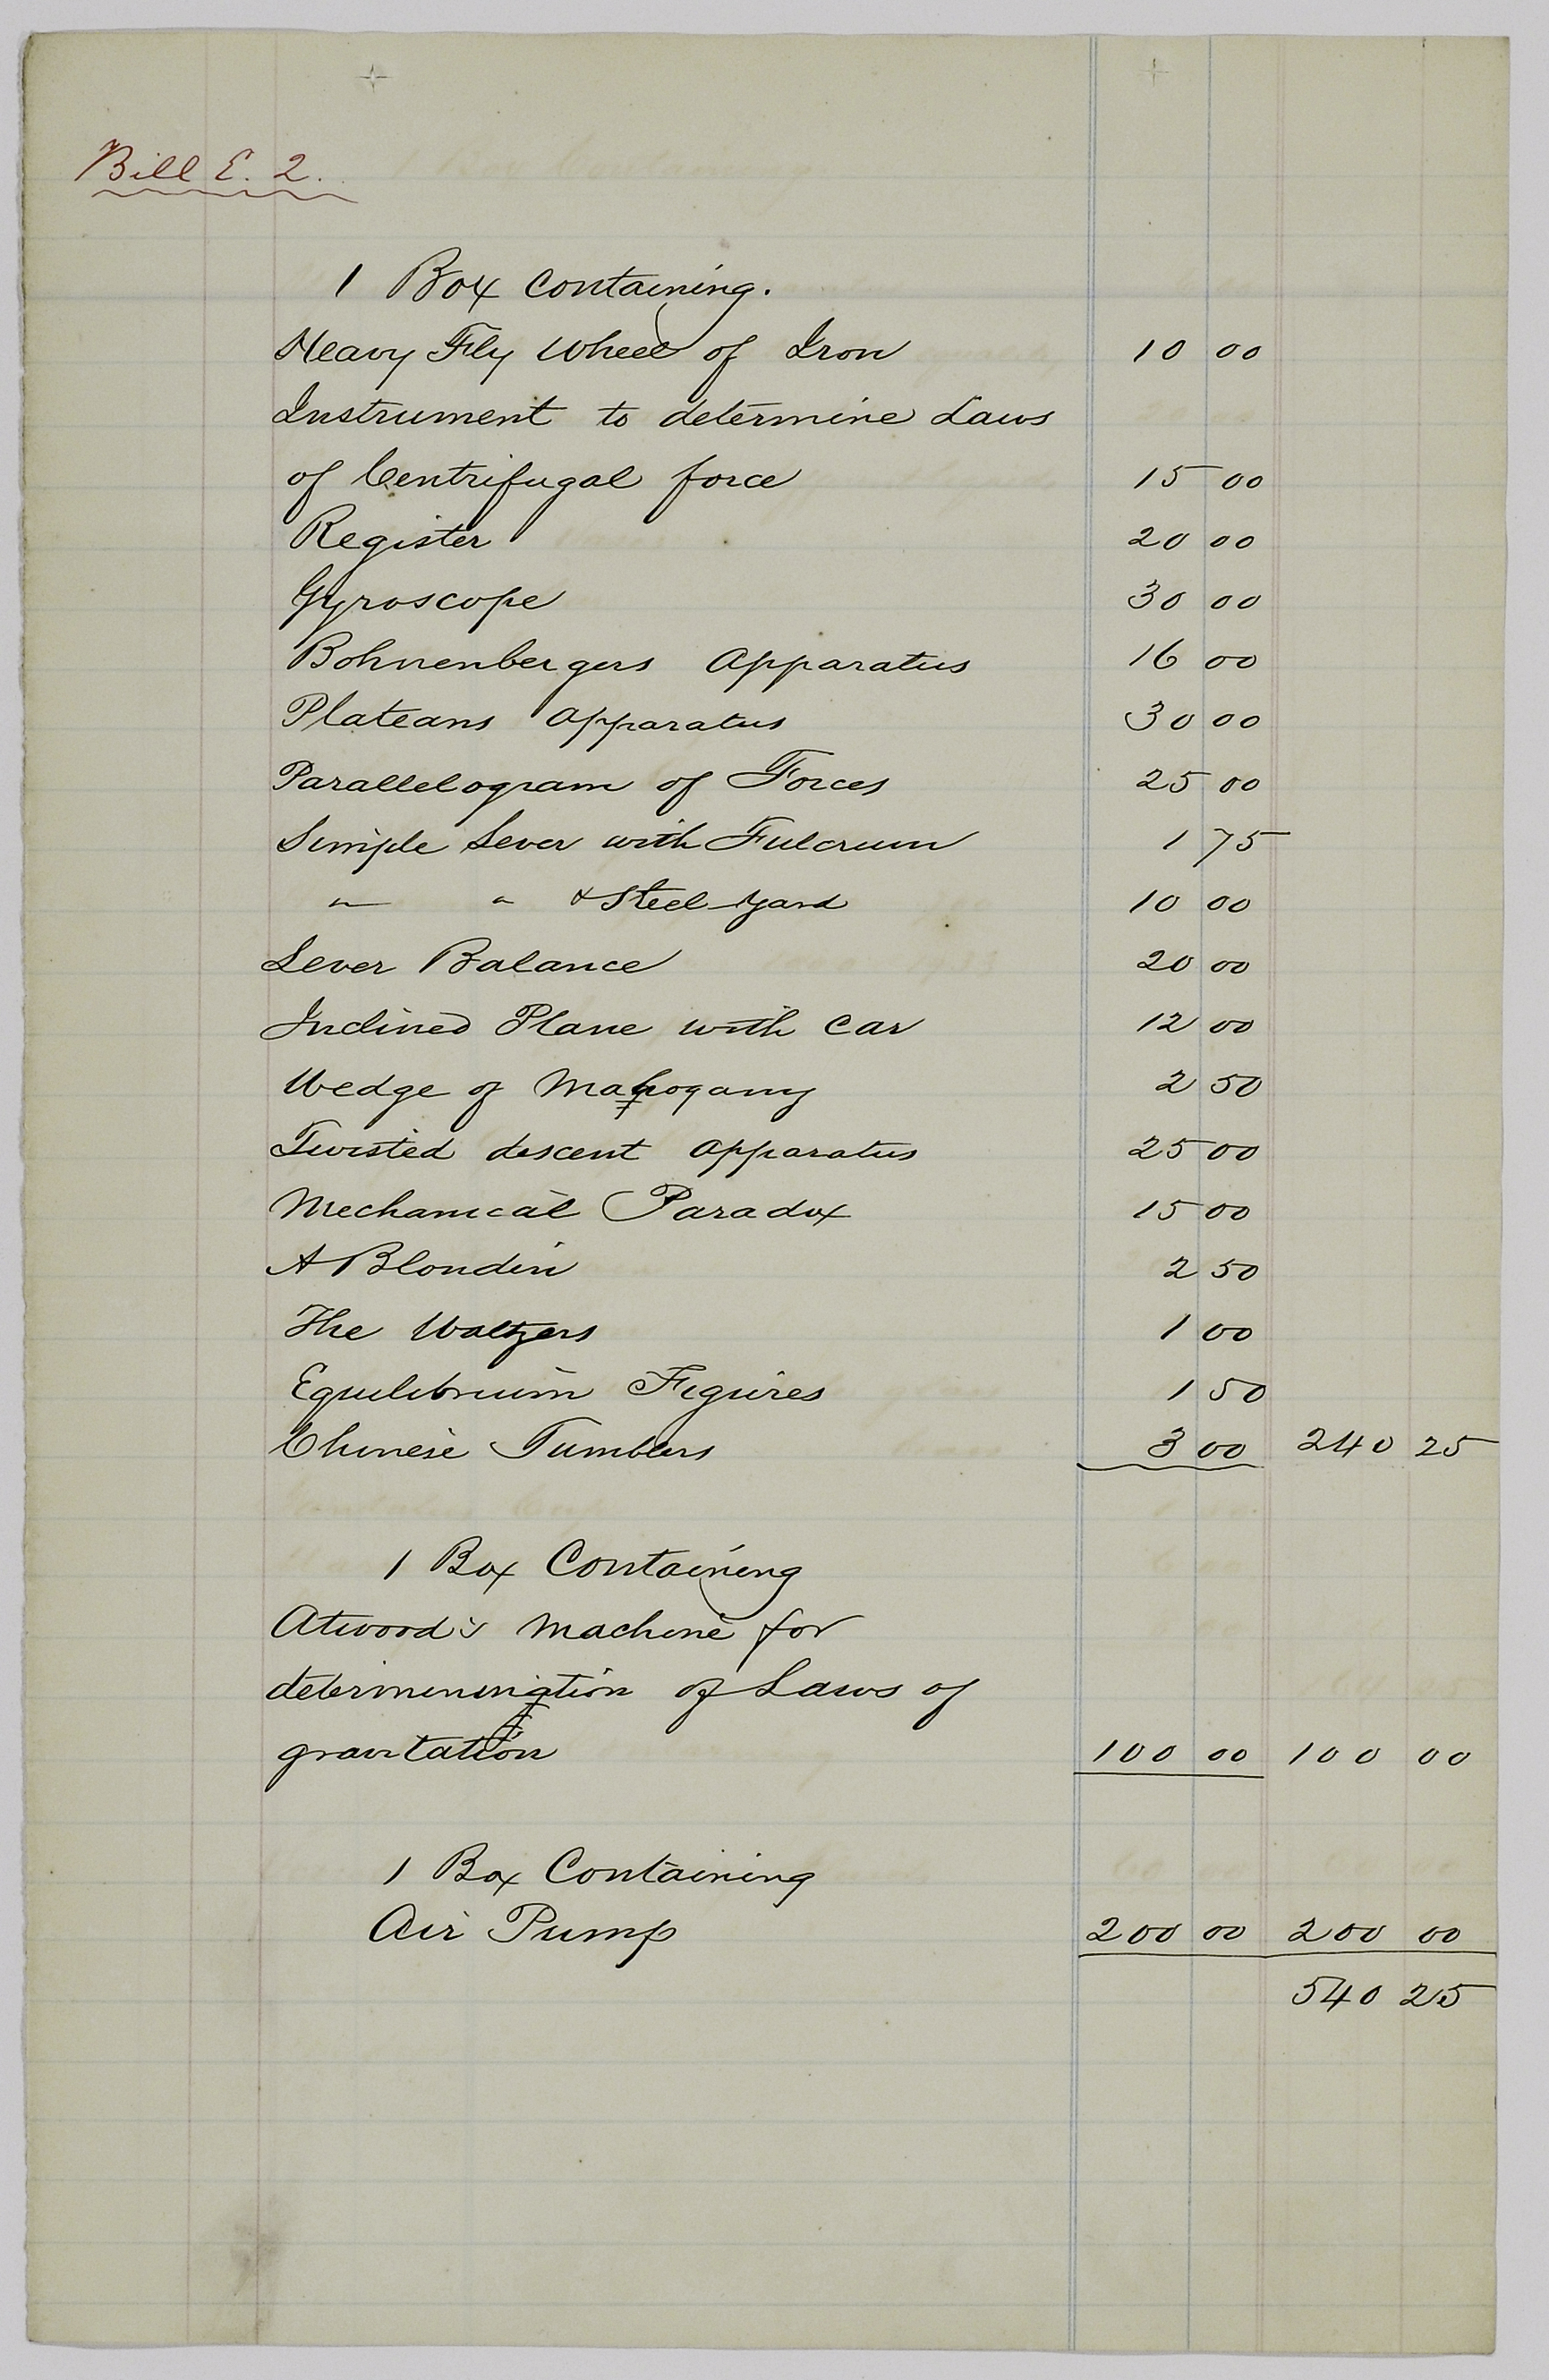 Bill E. 2.
1 Box containing.
Heavy Fly Wheel of Iron 10 00
Instrument to determine Laws
of Centrifugal force 15 00
Register 20 00
Gyroscope 30 00
Bohnenbergers Apparatus 16 00
Plateaus Apparatus 30 00
Parallelogram of Forces 25 00
Simple Lever with Fulcrum 1 75
" " & Steel yard 10 00
Lever Balance 20 00
Inclined Plane with Car 12 00
Wedge of Mahogany 2 50
Twisted descent apparatus 25 00
Mechanical Paradox 15 00
A Blondin 2 50
The Waltzers 1 00
Equilibrium Figures 1 50
Chinese Tumblers 3 00 240 25
1 Box Containing
Atwood's Machine for
determination of Laws of
gravitation 100 00 100 00
1 Box Containing
Air Pump 200 00 200 00
540 25